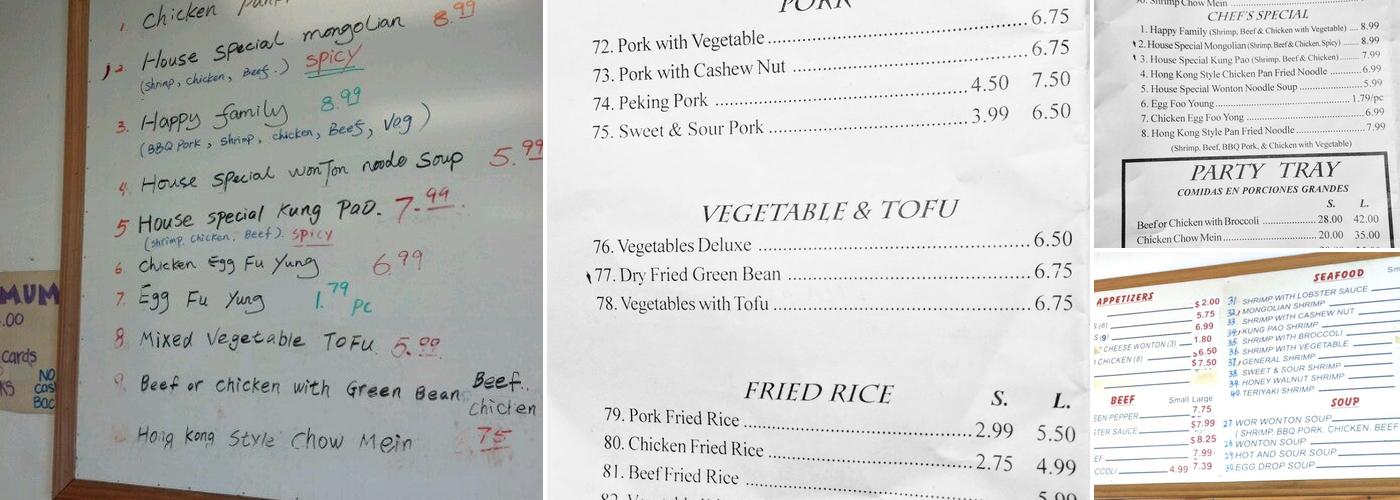 1. Chicken
2. House special mongolian 8.99
(shrimp, chicken, Beef.) spicy
3. Happy family 8.99
(BBQ Pork, shrimp, chicken, Beef, veg)
4. House special wonTon noodo Soup 5.99
5 House special Kung Pao. 7.99
(shrimp, chicken, Beef). spicy
6. Chicken Egg Fu Yung 6.99
7. Egg Fu Yung 1.79 pc
8. Mixed Vegetable ToFu 5.99
9. Beef or chicken with Green Bean Beef
chicken
Hong Kong Style Chow Mein 75
MUM
.00
Cards
KS NO
cas
Bac
PORK
72. Pork with Vegetable 6.75
73. Pork with Cashew Nut 6.75
74. Peking Pork 4.50 7.50
75. Sweet & Sour Pork 3.99 6.50
VEGETABLE & TOFU
76. Vegetables Deluxe 6.50
77. Dry Fried Green Bean 6.75
78. Vegetables with Tofu 6.75
FRIED RICE S. L.
79. Pork Fried Rice 2.99 5.50
80. Chicken Fried Rice 2.75 4.99
81. Beef Fried Rice
Shrimp Chow Mein
CHEF'S SPECIAL
1. Happy Family (Shrimp, Beef & Chicken with Vegetable) 8.99
2. House Special Mongolian (Shrimp, Beef & Chicken, Spicy) 8.99
3. House Special Kung Pao (Shrimp, Beef & Chicken) 7.99
4. Hong Kong Style Chicken Pan Fried Noodle 6.99
5. House Special Wonton Noodle Soup 5.99
6. Egg Foo Young 1.79/pc
7. Chicken Egg Foo Yong 6.99
8. Hong Kong Style Pan Fried Noodle 7.99
(Shrimp, Beef, BBQ Pork, & Chicken with Vegetable)
PARTY TRAY
COMIDAS EN PORCIONES GRANDES
S. L.
Beef or Chicken with Broccoli 28.00 42.00
Chicken Chow Mein 20.00 35.00
APPETIZERS
$2.00
5.75
S (6) 6.99
S (9) 1.80
CHEESE WONTON (3) $6.50
CHICKEN (8) $7.50
BEEF Small Large
EEN PEPPER 7.75
STER SAUCE $7.99
$8.25
EF 7.99
CCOLI 4.99 7.39
SEAFOOD
31. SHRIMP WITH LOBSTER SAUCE
32. MONGOLIAN SHRIMP
33. SHRIMP WITH CASHEW NUT
34. KUNG PAO SHRIMP
35 SHRIMP WITH BROCCOLI
36 SHRIMP WITH VEGETABLE
37. GENERAL SHRIMP
38. SWEET & SOUR SHRIMP
39. HONEY WALNUT SHRIMP
40. TERIYAKI SHRIMP
SOUP
27 WOR WONTON SOUP
(SHRIMP, BBQ PORK, CHICKEN, BEEF
28 WONTON SOUP
29 HOT AND SOUR SOUP
30 EGG DROP SOUP